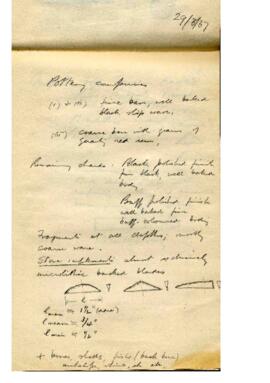 29/8/57
Pottery comprises
(i) + (ii) fine bone, well baked
black slip ware.
(iii) coarse bone with grains of
quartz red ware.
Remaining sherds. Black polished finish
fine black well baked
body.
Buff polished finish
well baked fine
buff coloured body
Fragments at all depths, mostly
coarse ware.
Stone implements almost exclusively
microlithic backed blades
l
l max = 1½"
l mean = ¾"
l min = ½"
+ bones, shells, fish (back bone)